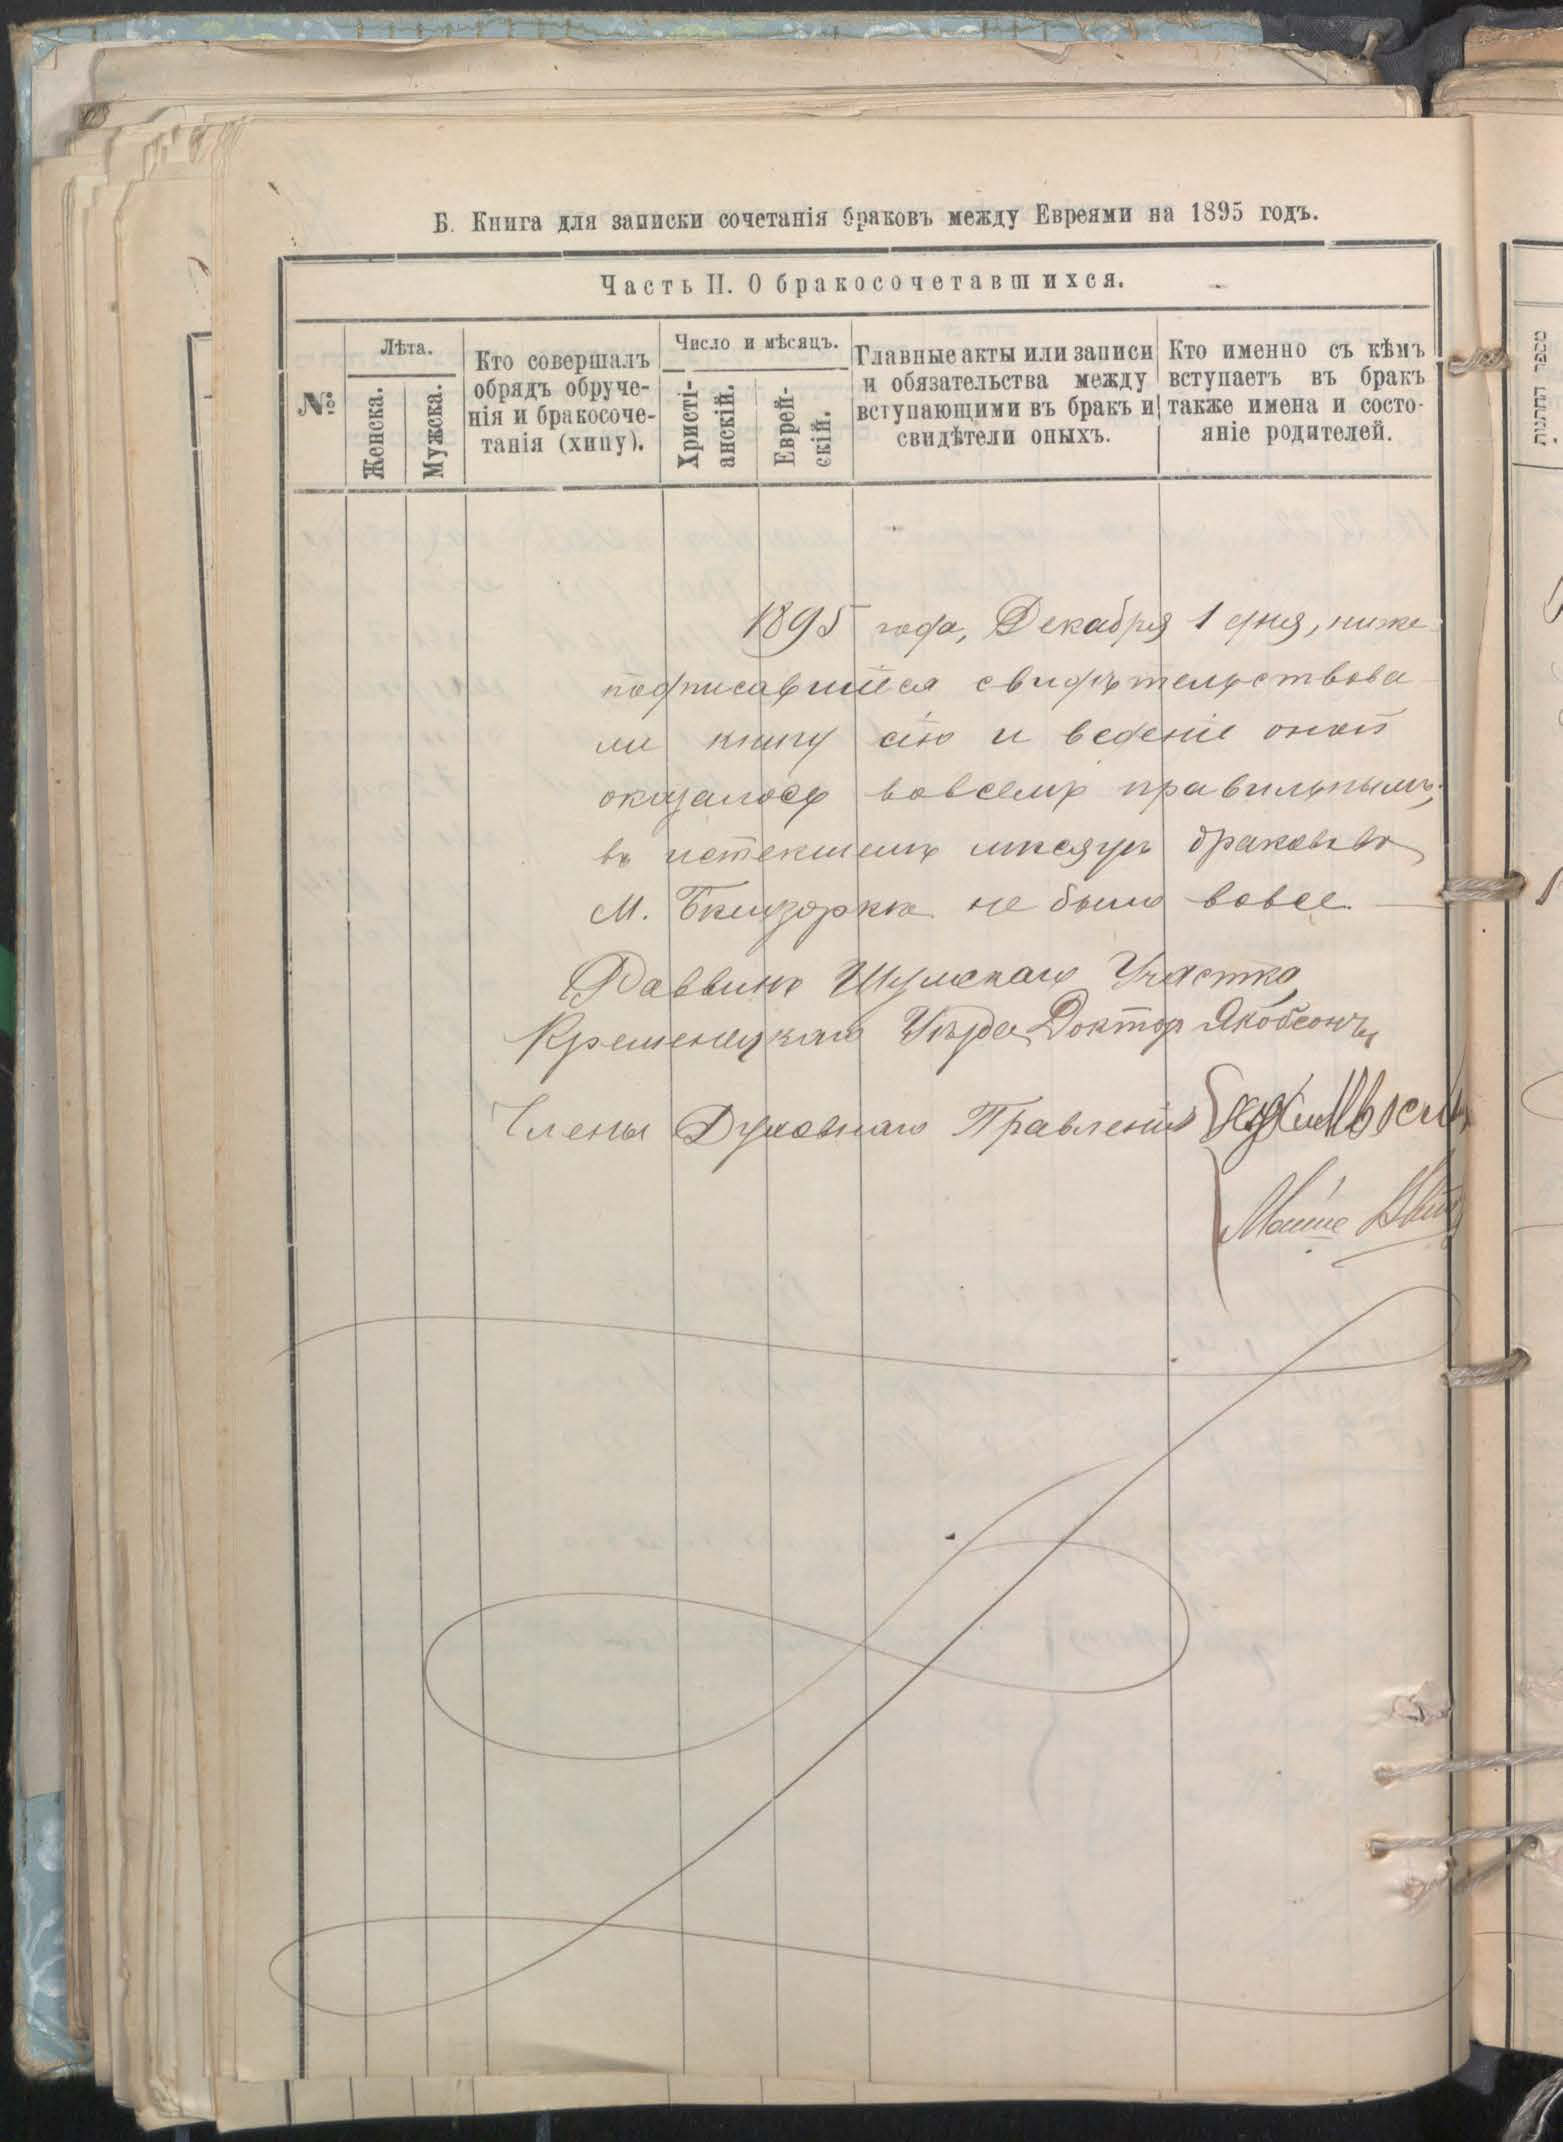 Б. Книга для записки сочетанія браковъ между Евреями на 1895 годъ.
Часть II. О бракосочетавшихся.
№
Лѣта.
Женска.
Мужска.
Кто совершалъ
обрядъ обруче-
нія и бракосоче-
танія (хипу).
Число и мѣсяцъ.
Христі-
анскій.
Еврей-
скій.
Главные акты или записи
и обязательства между
вступающими въ бракъ и
свидѣтели оныхъ.
Кто именно съ кѣмъ
вступаетъ въ бракъ
также имена и состо-
яніе родителей.
1895 года, Декабря 1 дня, ниже
подписавшіеся свидѣтельствова
ли книгу сію и веденіе оной
оказалось вовсемъ правильнымъ;
въ истекшемъ мѣсяцѣ браковъ въ
М. Бѣлозоркѣ не было вовсе.
Раввинъ Шумскаго Участка
Кременецкаго Уѣзда Докторъ Якобсонъ
Члены Духовнаго Правленія
Мошие
ספר החתנות